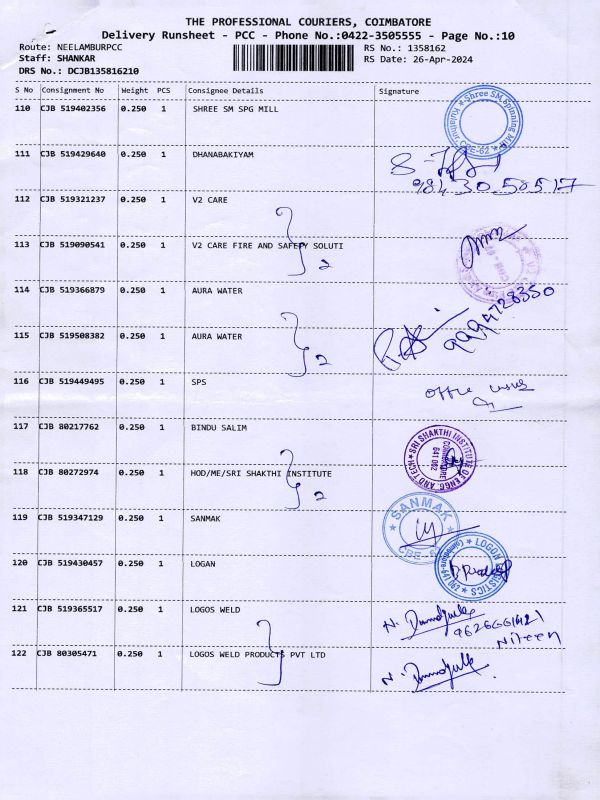 THE PROFESSIONAL COURIERS, COIMBATORE
Delivery Runsheet - PCC - Phone No.:0422-3505555 - Page No.:10
Route: NEELAMBURPCC RS No.: 1358162
Staff: SHANKAR RS Date: 26-Apr-2024
DRS No.: DCJB135816210
S No Consignment No Weight PCS Consignee Details Signature
110 CJB 519402356 0.250 1 SHREE SM SPG MILL
Shree SM Spinning Mill
CBE-62
111 CJB 519429640 0.250 1 DHANABAKIYAM
98430 50517
112 CJB 519321237 0.250 1 V2 CARE
113 CJB 519090541 0.250 1 V2 CARE FIRE AND SAFETY SOLUTI
2
114 CJB 519366879 0.250 1 AURA WATER
9994728350
115 CJB 519508382 0.250 1 AURA WATER
2
116 CJB 519449495 0.250 1 SPS
117 CJB 80217762 0.250 1 BINDU SALIM
118 CJB 80272974 0.250 1 HOD/ME/SRI SHAKTHI INSTITUTE
2
SRI SHAKTHI INSTITUTE OF ENGG. AND TECH
COIMBATORE
641 062
119 CJB 519347129 0.250 1 SANMAK
SANMAK
120 CJB 519430457 0.250 1 LOGAN
121 CJB 519365517 0.250 1 LOGOS WELD
Niteen
122 CJB 80305471 0.250 1 LOGOS WELD PRODUCTS PVT LTD